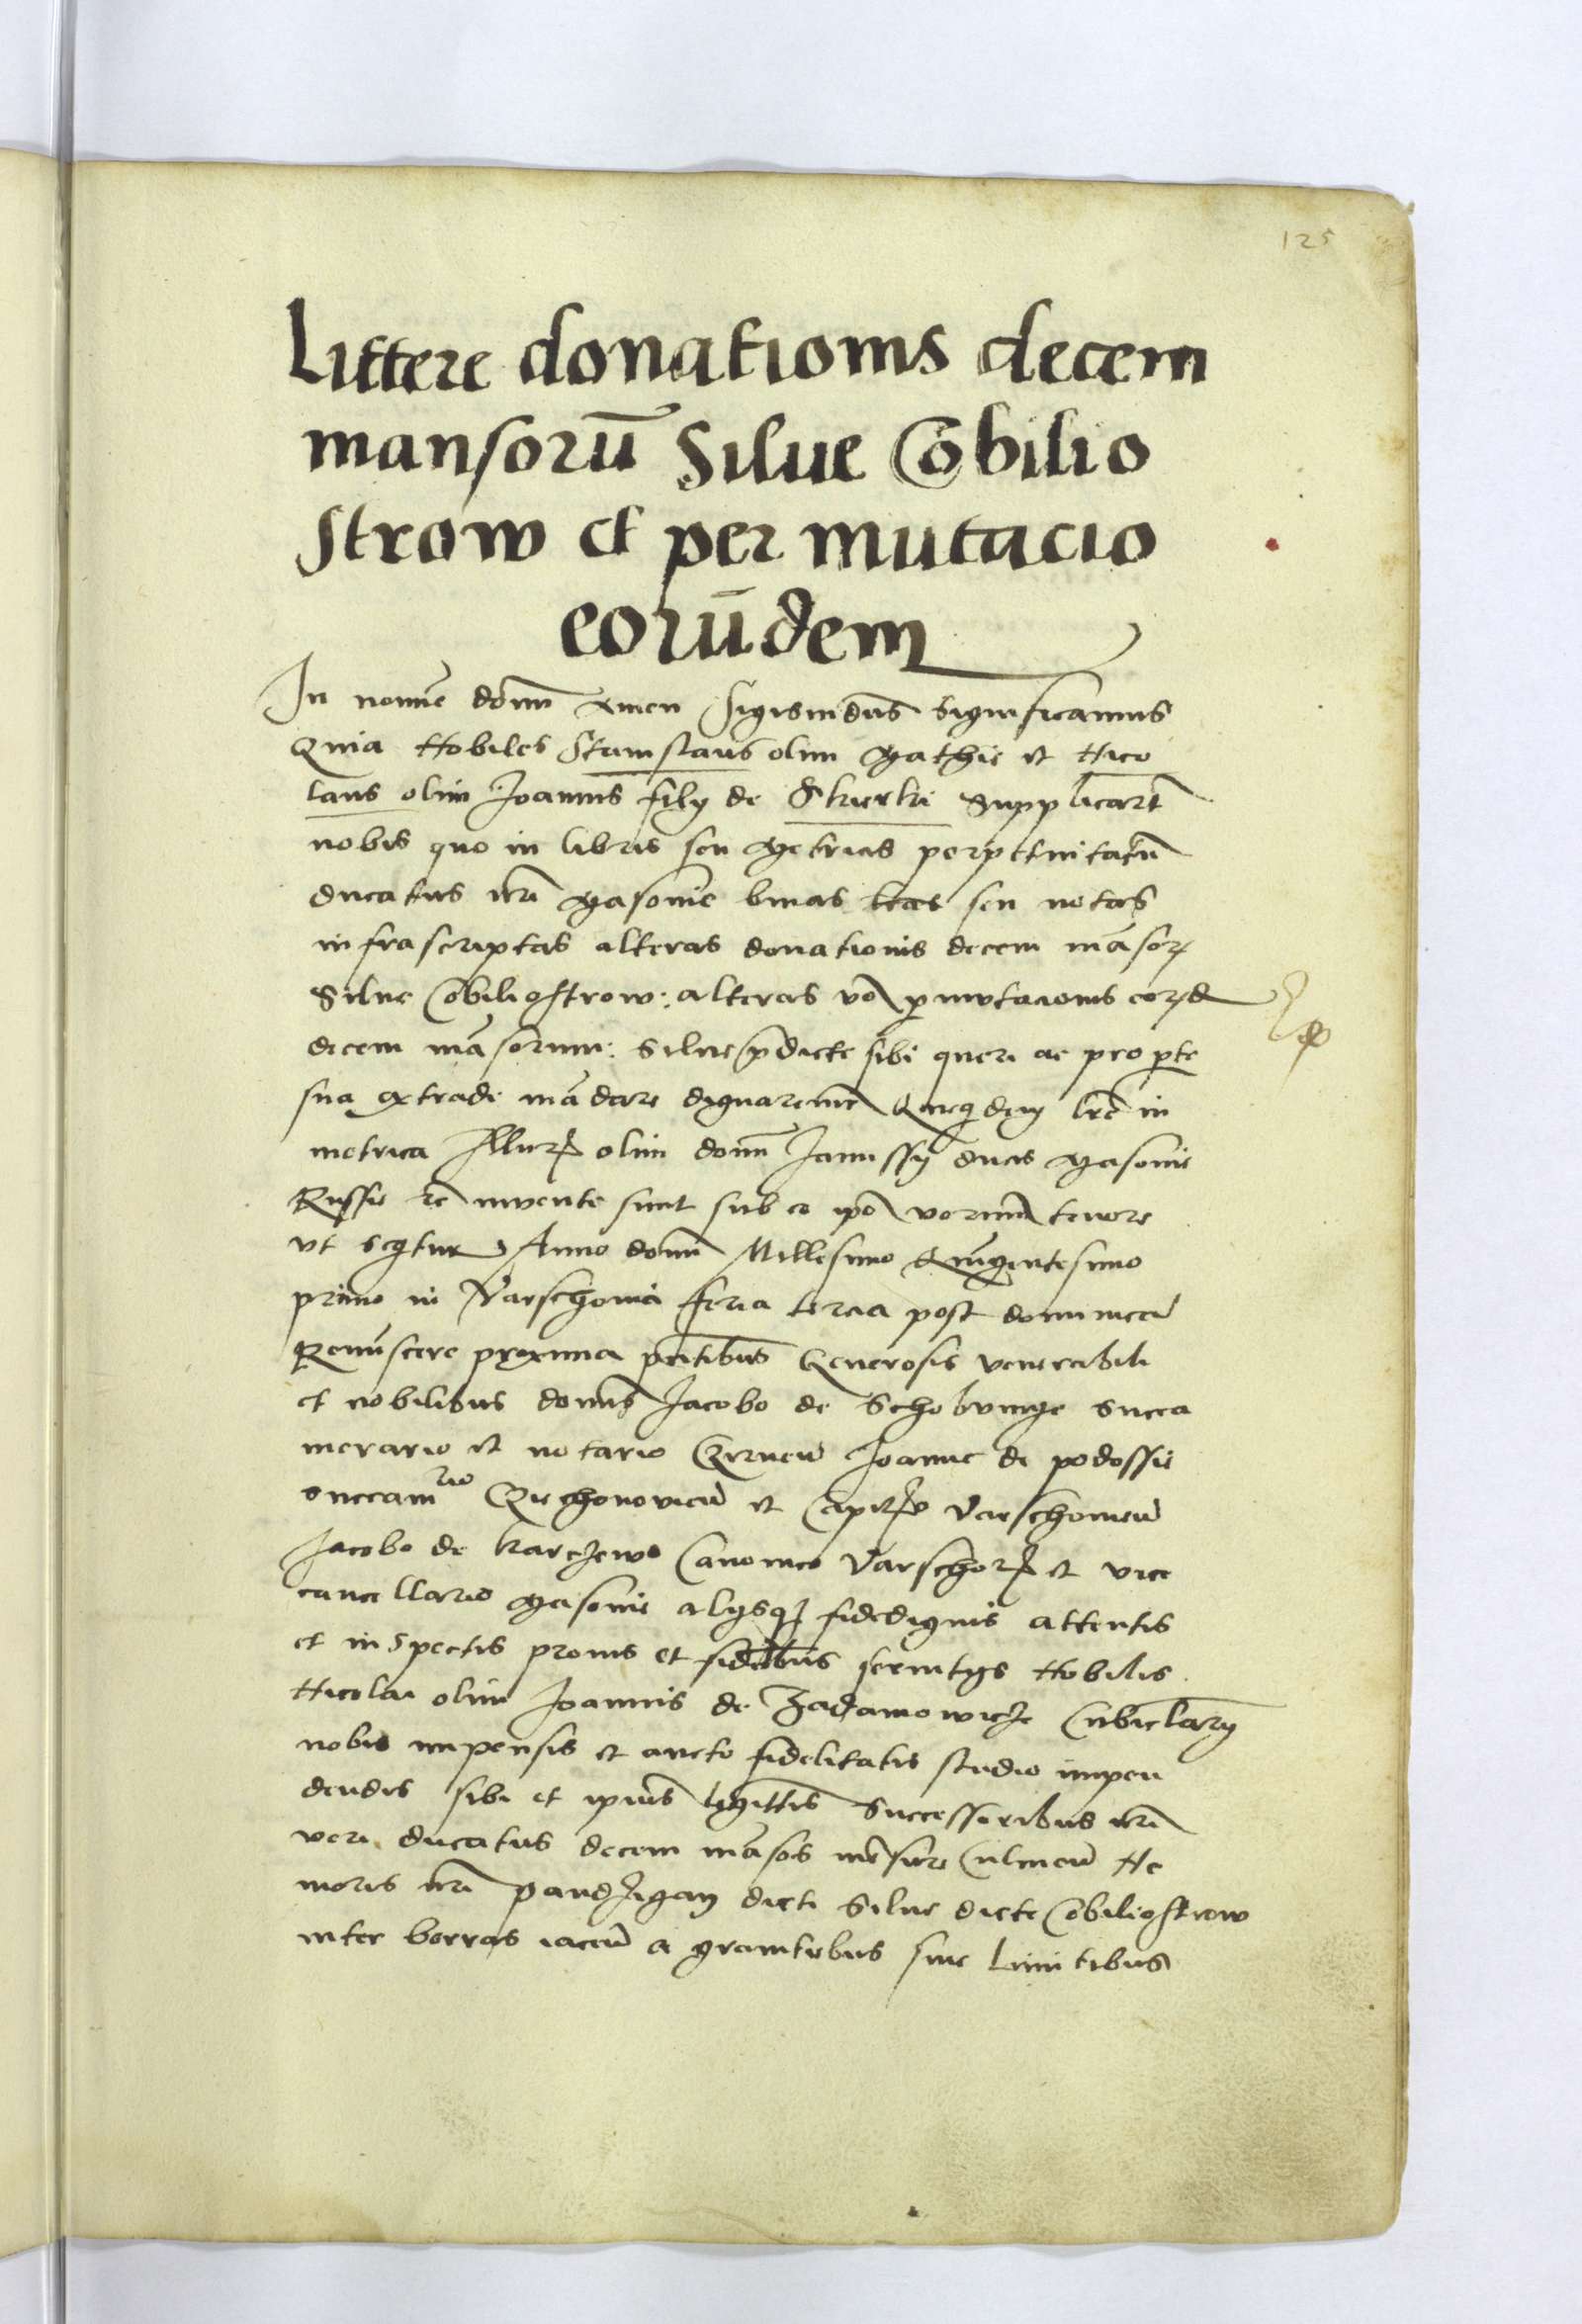 125
Littere donationis decem
mansorū Silue Cobilio
strow et per mutacio
eorūdem
In nomīe domī Amen Sigismdūs Significamus
Quia Nobiles Stanislaus olim Mathie et Nico
laus olim Joannis filij de Skierki Supplicarūt
nobis quo in libris seu Metricis perpetuitatū
ducatus nrī Masouie binas lras seu notas
infrascriptas alteras donationis decem māsorꝝ
Silue Cobiliostrow: alteras vō ꝑmutacionis eorꝝd
decem māsorum: Silue p̄dicte sibi queri ac pro ꝑte
sua extradi mādare dignaremr̄ Quequidem lrē in
metrica Illurꝝ olim domī Janussij ducis Masouie
Russie rc̄ inuente sunt sub eo ipō verūm tenore
vt seqtur Anno domī Millesimo Quīgentesimo
primo in Varschouia feria tercia post dominicā
Reminīscere proxima pn̄tibus Generosis venerabili
et nobilibus domīs Jacobo de Succa
merario et notario Cirnen̄ Joanne de podossie
Succamrio Cziechonouien̄ et Capitꝝ Varschouien̄
Jacobo de Karczewo Canonico Varschorꝝ et vice
cancellario Masouie alijsqꝫ fidedignis attentis
et inspectis pronis et fidelibus seruitijs Nobilis
Nicolai olim Joannis de Zadamowicze Cubiclarij
nobis impensis et aucto fidelitatis studio impen
dendis sibi et ipius legittīs Successoribus nrī
veri ducatus decem māsos mēsure Culmen̄ Ne
moris nrī dicti Silue dicte Cobiliostrow
inter borras iacen̄ a granitiebus siue Limitibus